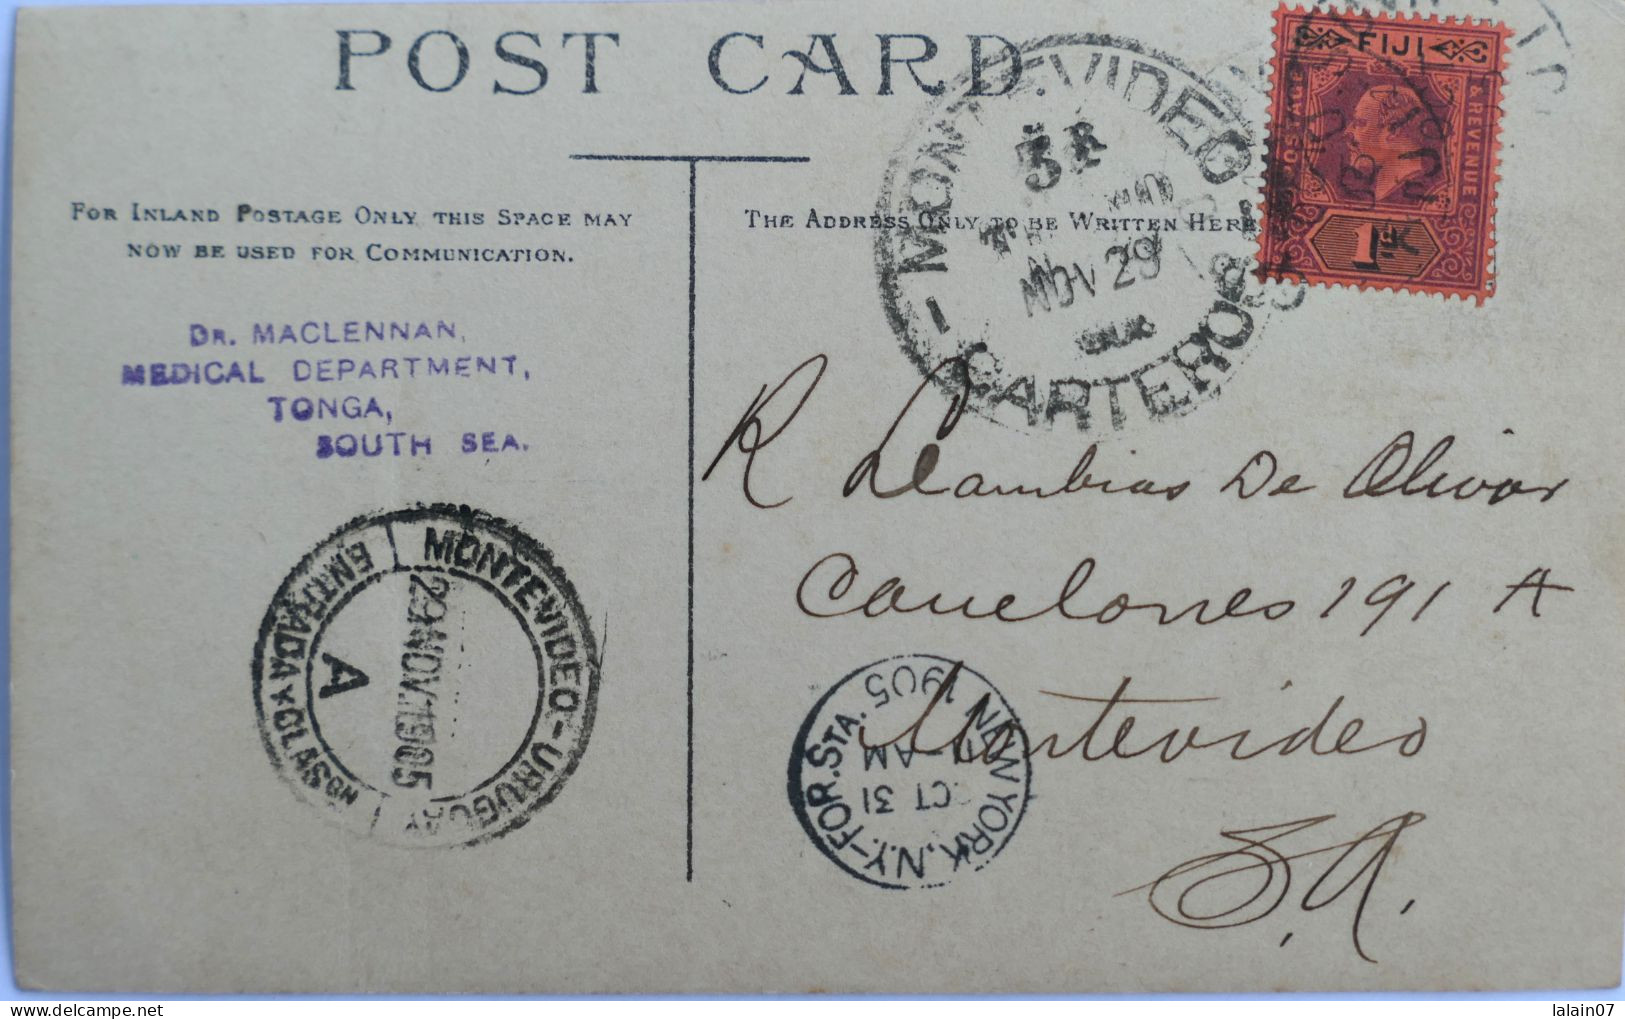 POST CARD
FOR INLAND POSTAGE ONLY THIS SPACE MAY
NOW BE USED FOR COMMUNICATION.
THE ADDRESS ONLY TO BE WRITTEN HERE
FIJI
POSTAGE & REVENUE
1
DR. MACLENNAN,
MEDICAL DEPARTMENT,
TONGA,
SOUTH SEA.
MONTEVIDEO
NOV 29
CARTEROS
R De Olivar
Canelones 191 A
Montevideo
S.A.
MONTEVIDEO-URUGUAY
29 NOV. 1905
ENTRADA Y CLASON
A
NEW YORK, N.Y.-FOR. STA.
OCT 31
AM
1905
lalain07